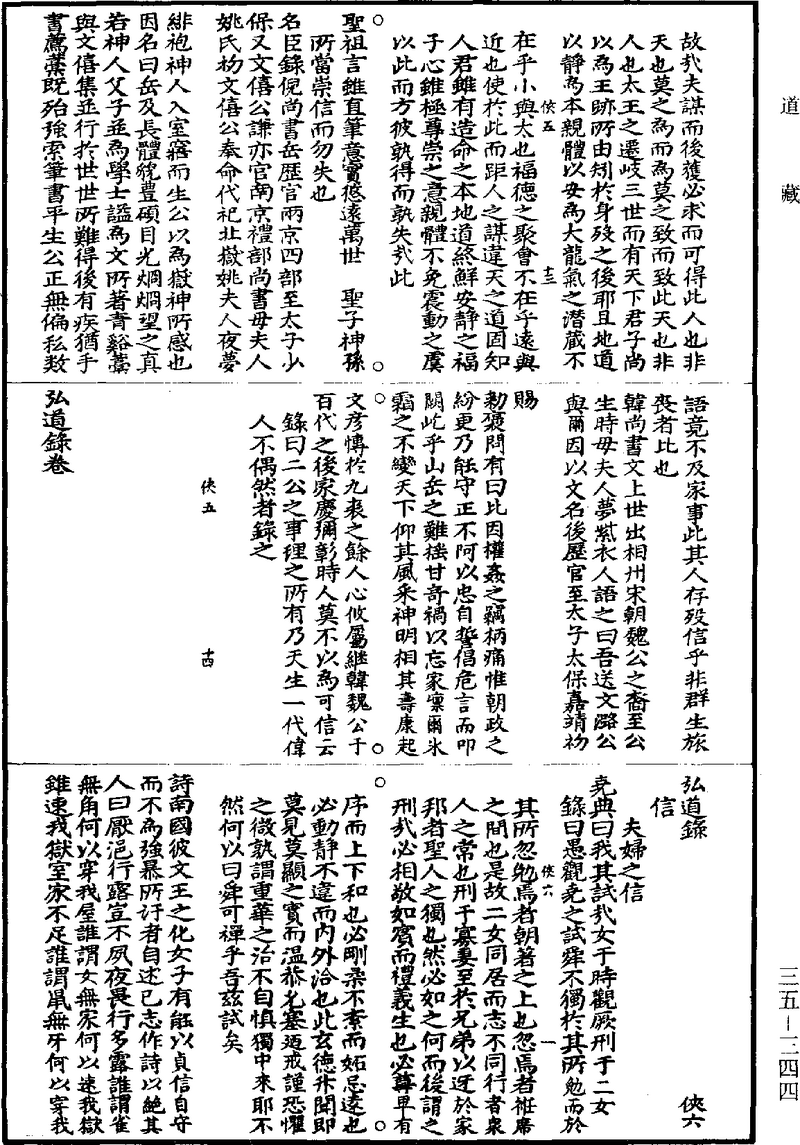 道藏
故哉夫謀而後獲必求而可得此人也非
天也莫之為而為莫之致而致此天也非
人也太王之遷岐三世而有天下君子尚
以為王跡所由矧於身歿之後耶且地道
以靜為本親體以安為大龍氣之潛藏不
俠五
十三
在乎小與太也福德之聚會不在乎遠與
近也使於此而距人之謀違天之道固知
人君雖有造命之本地道終鮮安靜之福
子心雖極尊崇之意親體不免震動之虞
以此而方彼孰得而孰失哉此
聖祖言雖直筆意實悠遠萬世 聖子神孫
所當崇信而勿失也
○名臣錄倪尚書岳歷官兩京四部至太子少○
保父文僖公謙亦官南京禮部尚書母夫人
姚氏初文僖公奉命代祀北嶽姚夫人夜夢
緋袍神人入室寤而生公以為嶽神所感也
因名曰岳及長體貌豊碩目光烱烱望之真
若神人父子並為學士謚為文所著青谿藳
與文僖集並行於世世所難得後有疾猶手
書薦藁既殆強索筆書平生公正無偏私數
語竟不及家事此其人存歿信乎非群生旅
喪者比也
韓尚書文上世出相州宋朝魏公之裔至公
生時母夫人夢紫衣人語之曰吾送文潞公
與爾因以文名後歷官至太子太保嘉靖初
賜
勑褒問有曰比因權姦之竊柄痛惟朝政之
紛更乃能守正不阿以忠自誓倡危言而叩
闕屹乎山岳之難搖甘奇禍以忘家凜爾氷
霜之不變天下仰其風采神明相其壽康起
○文彥愽於九袠之餘人心攸屬繼韓魏公于○
百代之後家慶彌彰時人莫不以為可信云
錄曰二公之事理之所有乃天生一代偉
人不偶然者錄之
俠五
十四
弘道錄卷
弘道錄
俠六
信
夫婦之信
堯典曰我其試哉女于時觀厥刑于二女
錄曰愚觀堯之試舜不獨於其所勉而於
俠六
一
其所忽勉焉者朝著之上也忽焉者袵席
之間也是故二女同居而志不同行者衆
人之常也刑于寡妻至於兄弟以迓於家
邦者聖人之獨也然必如之何而後謂之
刑哉必相敬如賔而禮義生也必尊卑有
○序而上下和也必剛柔不紊而妬忌遠也○
必動靜不違而內外洽也此玄德升聞即
莫見莫顯之實而温恭允塞迺戒謹恐懼
之微孰謂重華之治不自慎獨中來耶不
然何以曰舜可禪乎吾茲試矣
詩南國彼文王之化女子有能以貞信自守
而不為強暴所汙者自述己志作詩以絶其
人曰厭浥行露豈不夙夜畏行多露誰謂雀
無角何以穿我屋誰謂女無家何以速我獄
雖速我獄室家不足誰謂鼠無牙何以穿我
三五－二四四